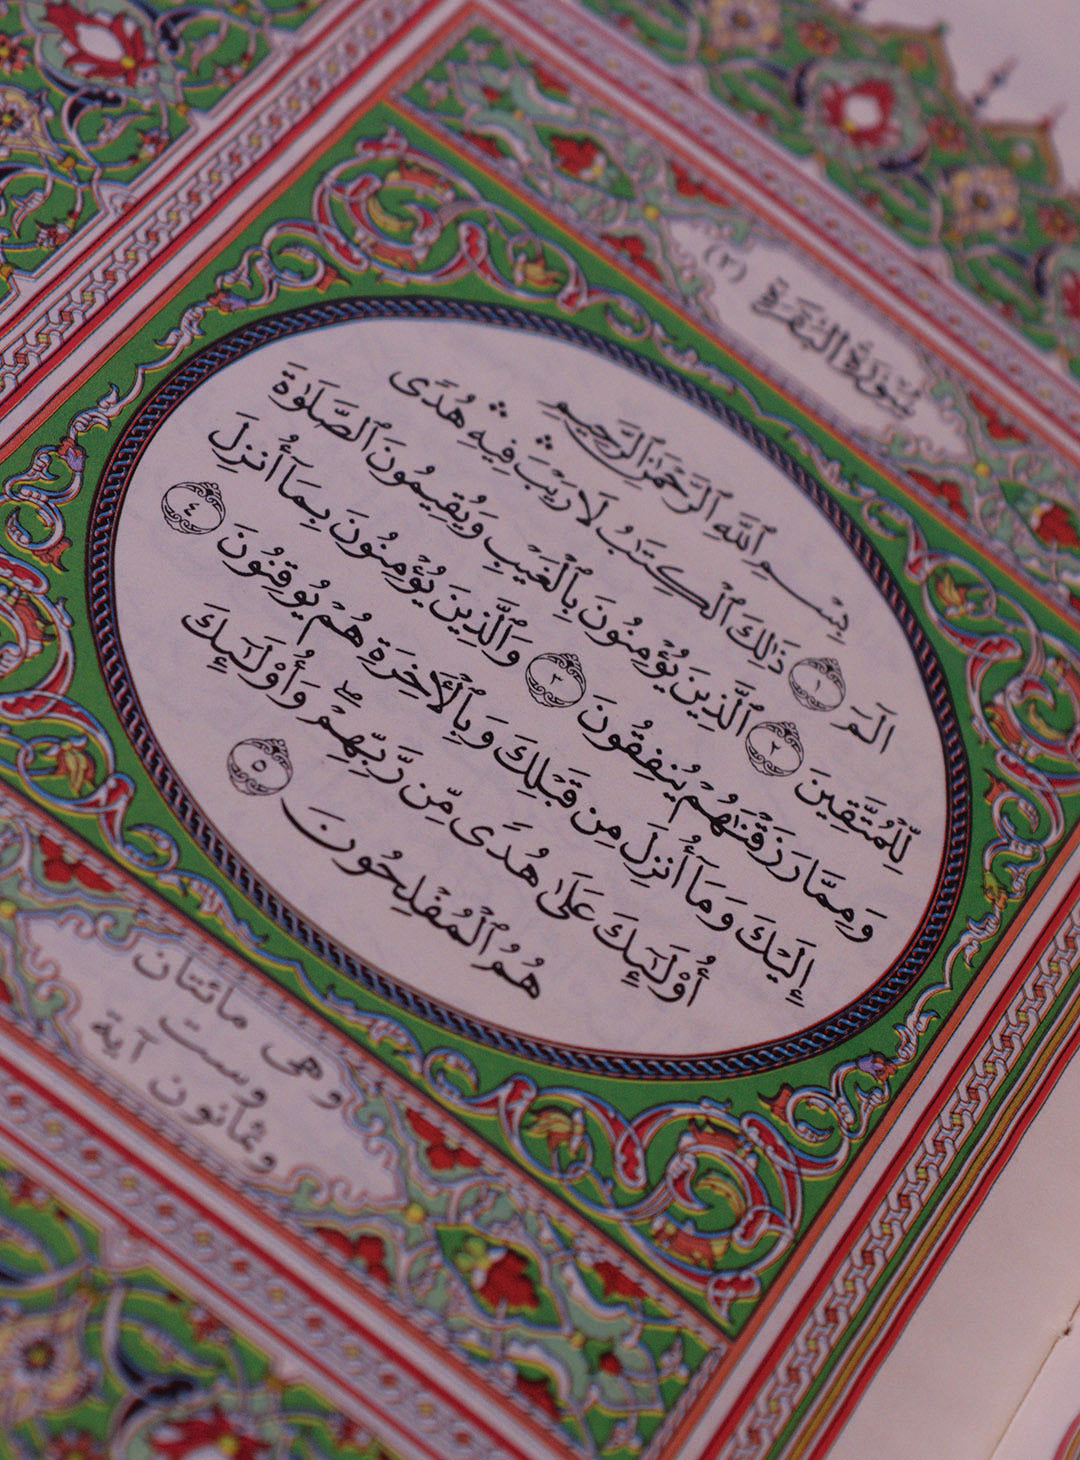 سُورَةُ البَقَرَةِ (٢)
بِسْمِ ٱللَّهِ ٱلرَّحْمَٰنِ ٱلرَّحِيمِ
الٓمٓ ١ ذَٰلِكَ ٱلْكِتَٰبُ لَا رَيْبَ ۛ فِيهِ ۛ هُدًى
لِّلْمُتَّقِينَ ٢ ٱلَّذِينَ يُؤْمِنُونَ بِٱلْغَيْبِ وَيُقِيمُونَ ٱلصَّلَوٰةَ
وَمِمَّا رَزَقْنَٰهُمْ يُنفِقُونَ ٣ وَٱلَّذِينَ يُؤْمِنُونَ بِمَآ أُنزِلَ
إِلَيْكَ وَمَآ أُنزِلَ مِن قَبْلِكَ وَبِٱلْأَخِرَةِ هُمْ يُوقِنُونَ ٤
أُو۟لَٰٓئِكَ عَلَىٰ هُدًى مِّن رَّبِّهِمْ ۖ وَأُو۟لَٰٓئِكَ
هُمُ ٱلْمُفْلِحُونَ ٥
وهى مائتان
وست
وثمانون آية